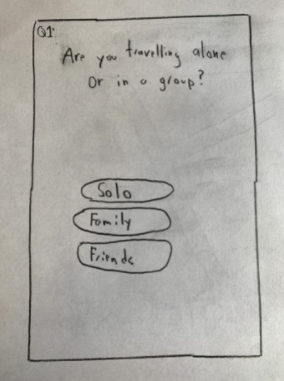 Q1:
Are you travelling alone
Or in a group?
Solo
Family
Friends